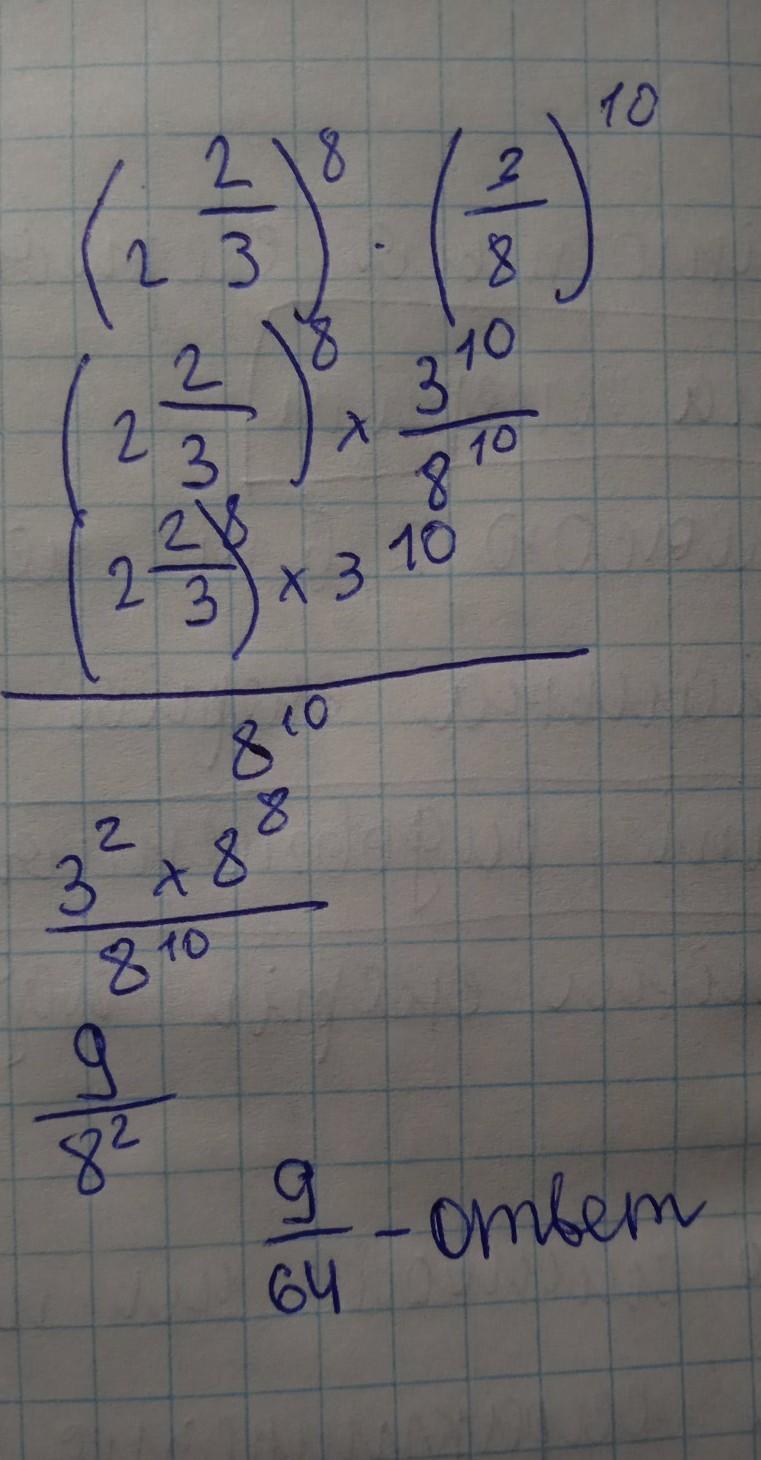 (2 2/3)^8 · (3/8)^10
(2 2/3)^8 × 3^10/8^10
(2 2/3)^8 × 3^10
8^10
3^2 × 8^8
8^10
9
8^2
9/64 - ответ